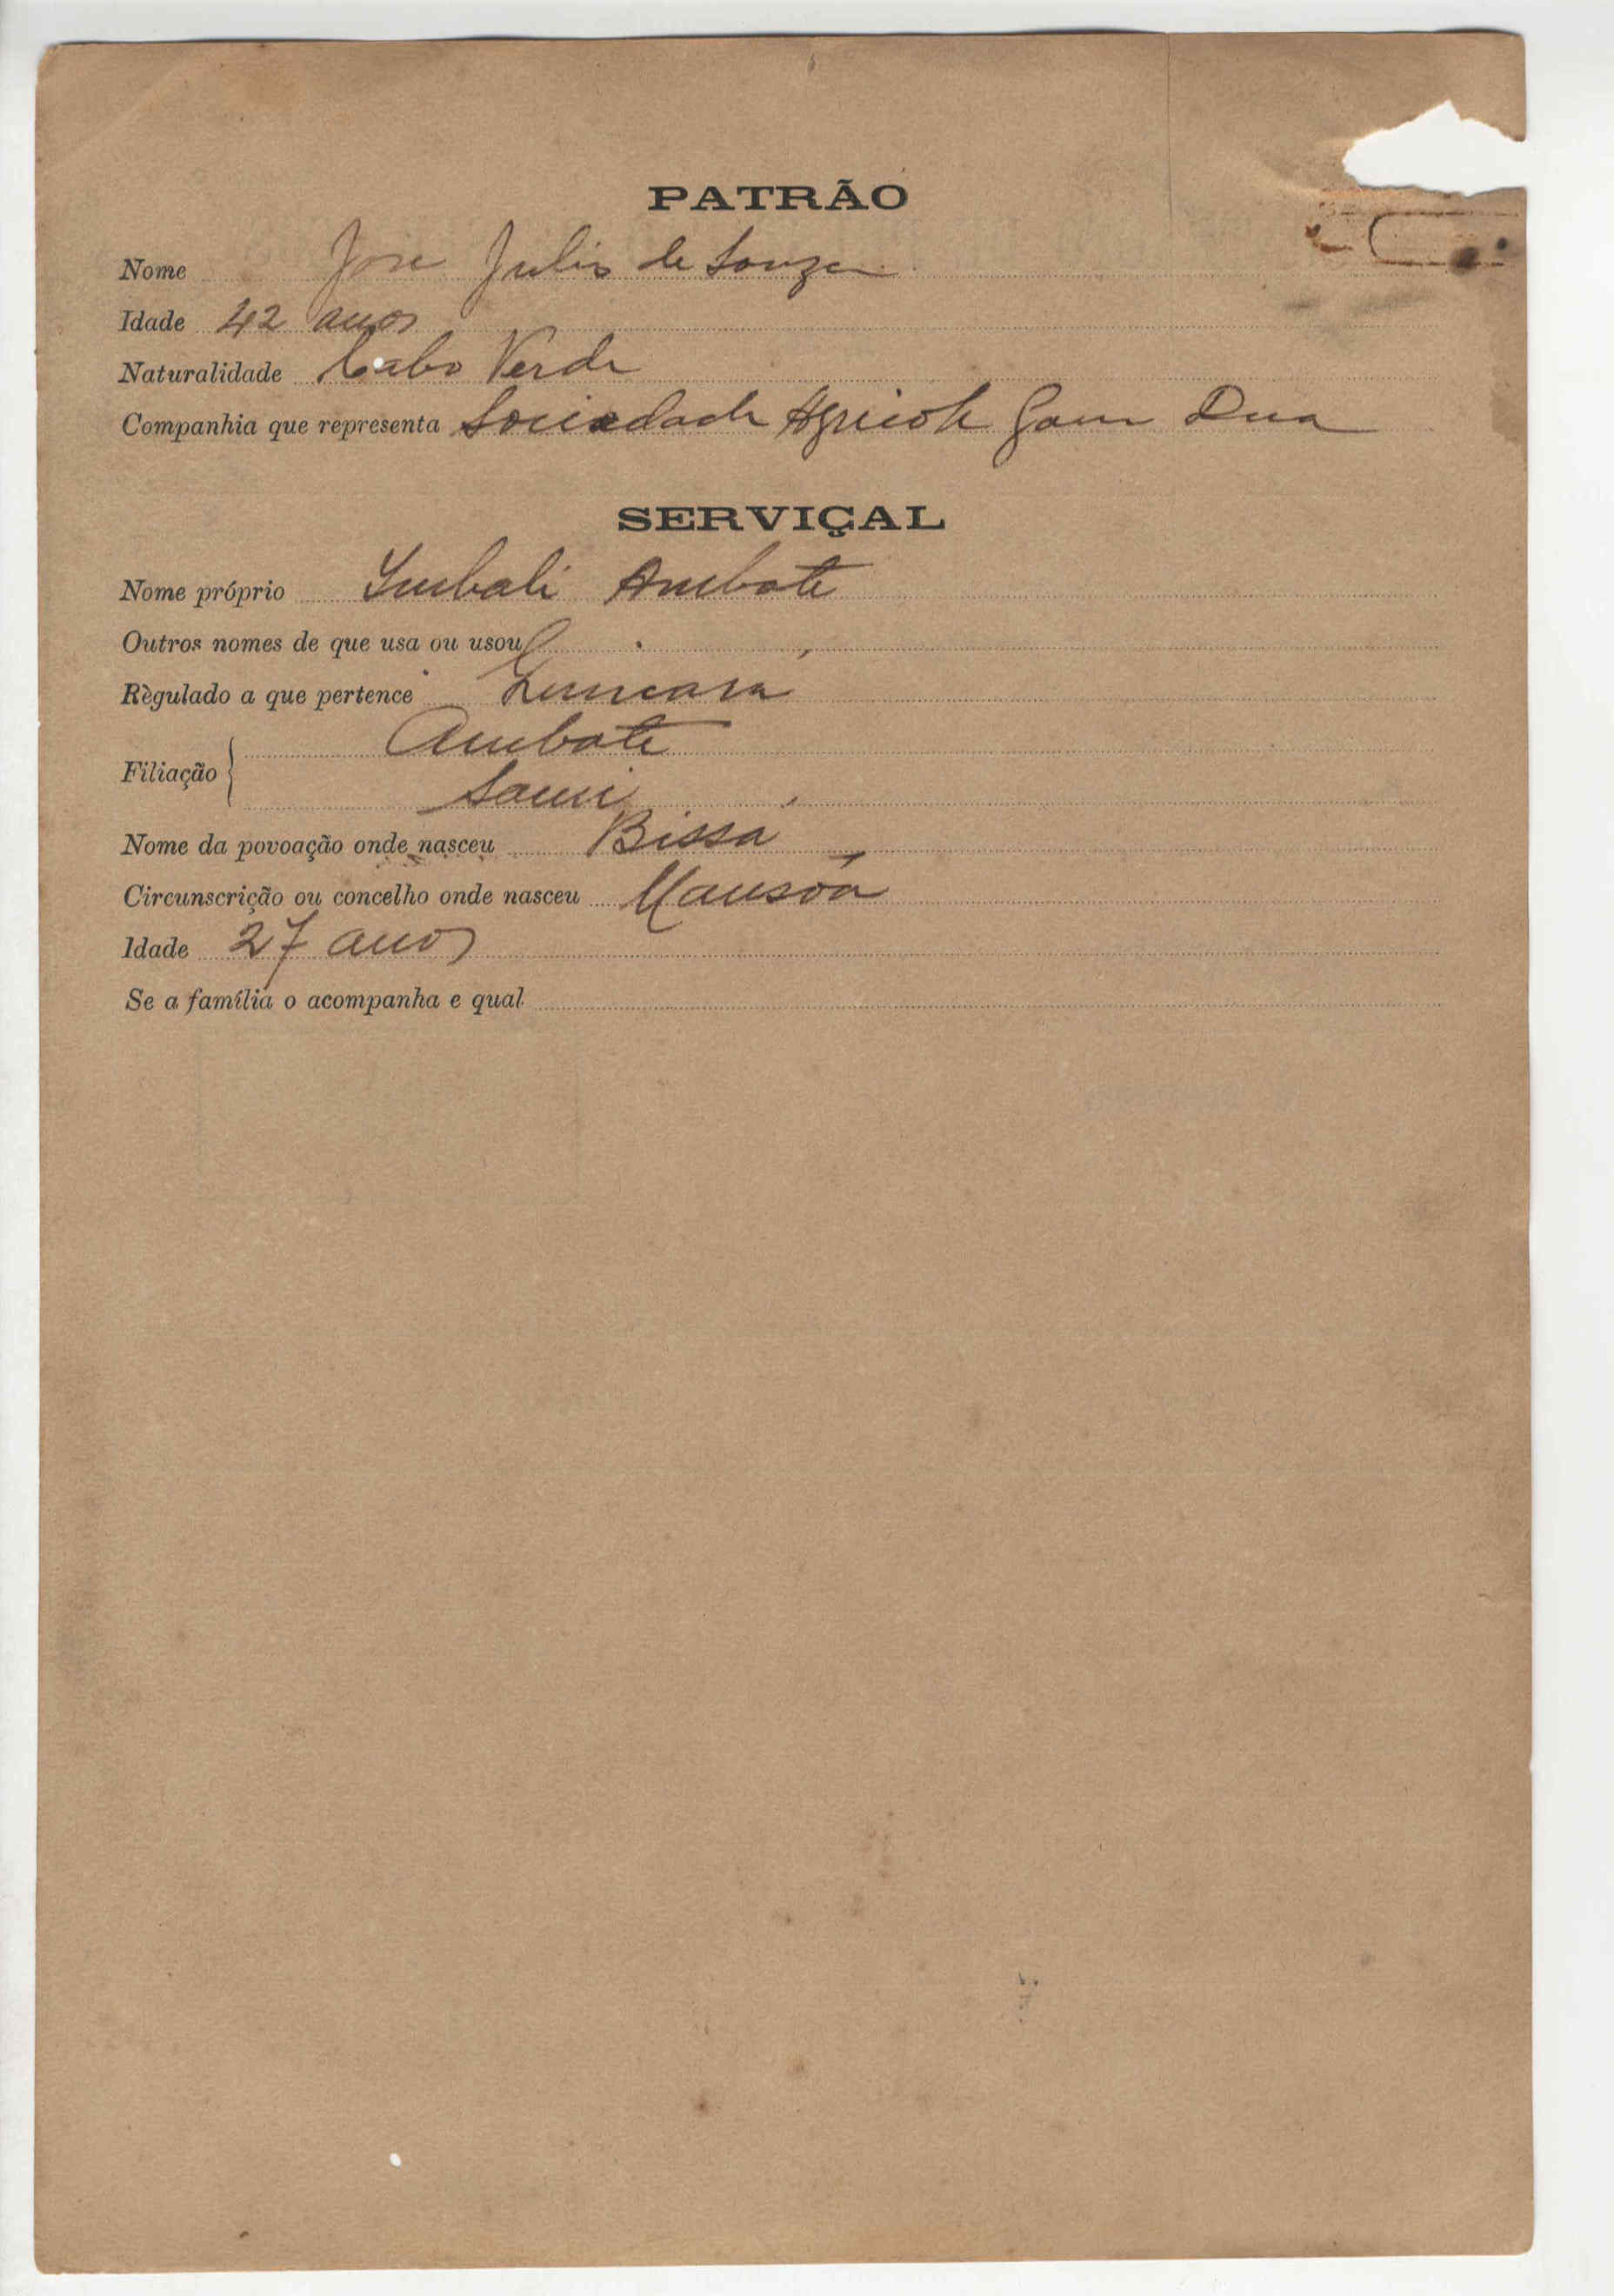 PATRÃO
Nome Jose Julio de Souza
Idade 42 anos
Naturalidade Cabo Verde
Companhia que representa Sociedade Agricola Gam Dua
SERVIÇAL
Nome próprio Imbali Ambate
Outros nomes de que usa ou usou
Règulado a que pertence
Filiação { Ambate
Sami
Nome da povoação onde nasceu Bissá
Circunscrição ou concelho onde nasceu Mansôa
Idade 27 anos
Se a família o acompanha e qual